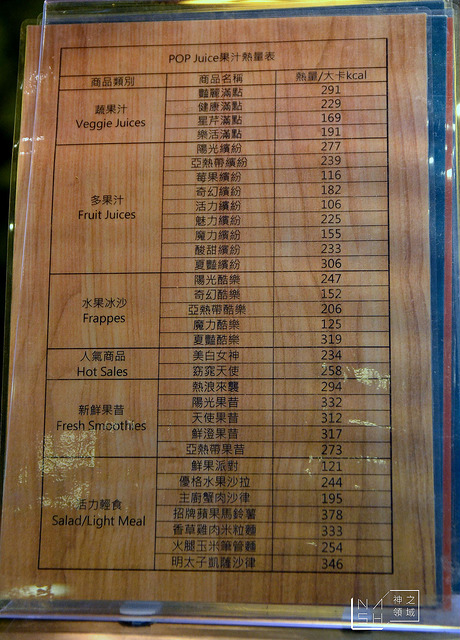 POP Juice果汁熱量表
商品類別 商品名稱 熱量/大卡kcal
蔬果汁
Veggie Juices
豔麗滿點 291
健康滿點 229
星芹滿點 169
樂活滿點 191
多果汁
Fruit Juices
陽光繽紛 277
亞熱帶繽紛 239
莓果繽紛 116
奇幻繽紛 182
活力繽紛 106
魅力繽紛 225
魔力繽紛 155
酸甜繽紛 233
夏豔繽紛 306
水果冰沙
Frappes
陽光酷樂 247
奇幻酷樂 152
亞熱帶酷樂 206
魔力酷樂 125
夏豔酷樂 319
人氣商品
Hot Sales
美白女神 234
窈窕天使 258
新鮮果昔
Fresh Smoothies
熱浪來襲 294
陽光果昔 332
天使果昔 312
鮮澄果昔 317
亞熱帶果昔 273
活力輕食
Salad/Light Meal
鮮果派對 121
優格水果沙拉 244
主廚蟹肉沙律 195
招牌蘋果馬鈴薯 378
香草雞肉米粒麵 333
火腿玉米筆管麵 254
明太子凱薩沙律 346
神之
領域